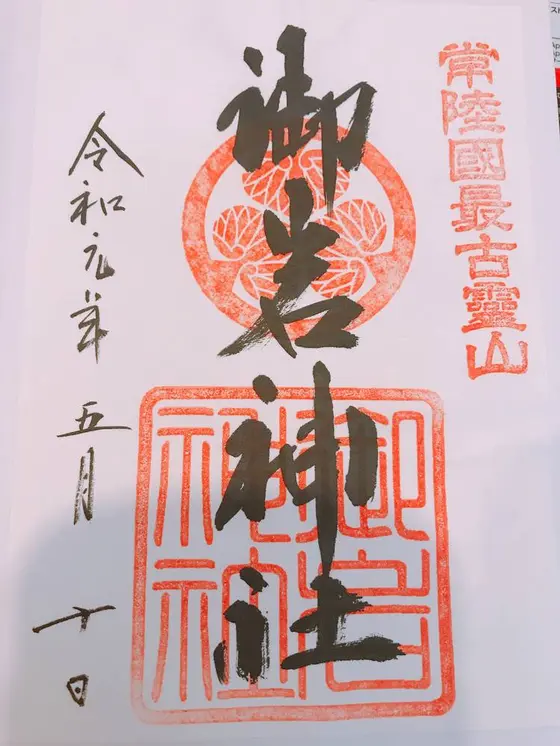 常陸國最古靈山
御岩神社
御岩神社
令和元年 五月 十日